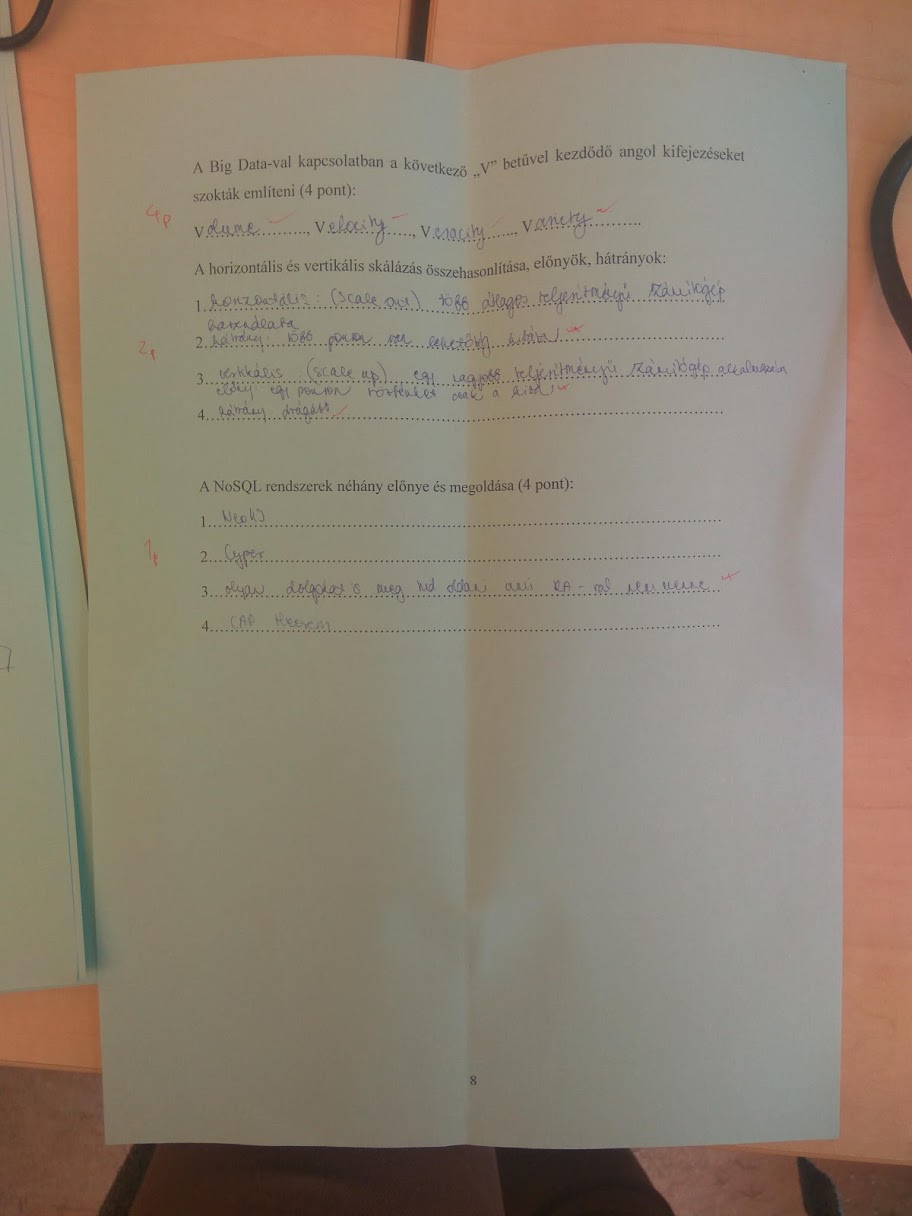 A Big Data-val kapcsolatban a következő „V” betűvel kezdődő angol kifejezéseket
szokták említeni (4 pont):
4p
Volume.........., Velocity....., Veracity....., Variety..........
A horizontális és vertikális skálázás összehasonlítása, előnyök, hátrányok:
1. horizontális: (scale out) több átlagos teljesítményű számítógép
használata
2p
2. hátrány: több ponton van lehetőség hibára
3. vertikális: (scale up) egy nagyobb teljesítményű számítógép alkalmazása
előny: egy ponton történhet csak a hiba
4. hátrány drágább
A NoSQL rendszerek néhány előnye és megoldása (4 pont):
1. Neo4J
1p
2. Cyper
3. olyan dolgokat is meg tud oldani ami RA-val nem menne
4. CAP theorem
8